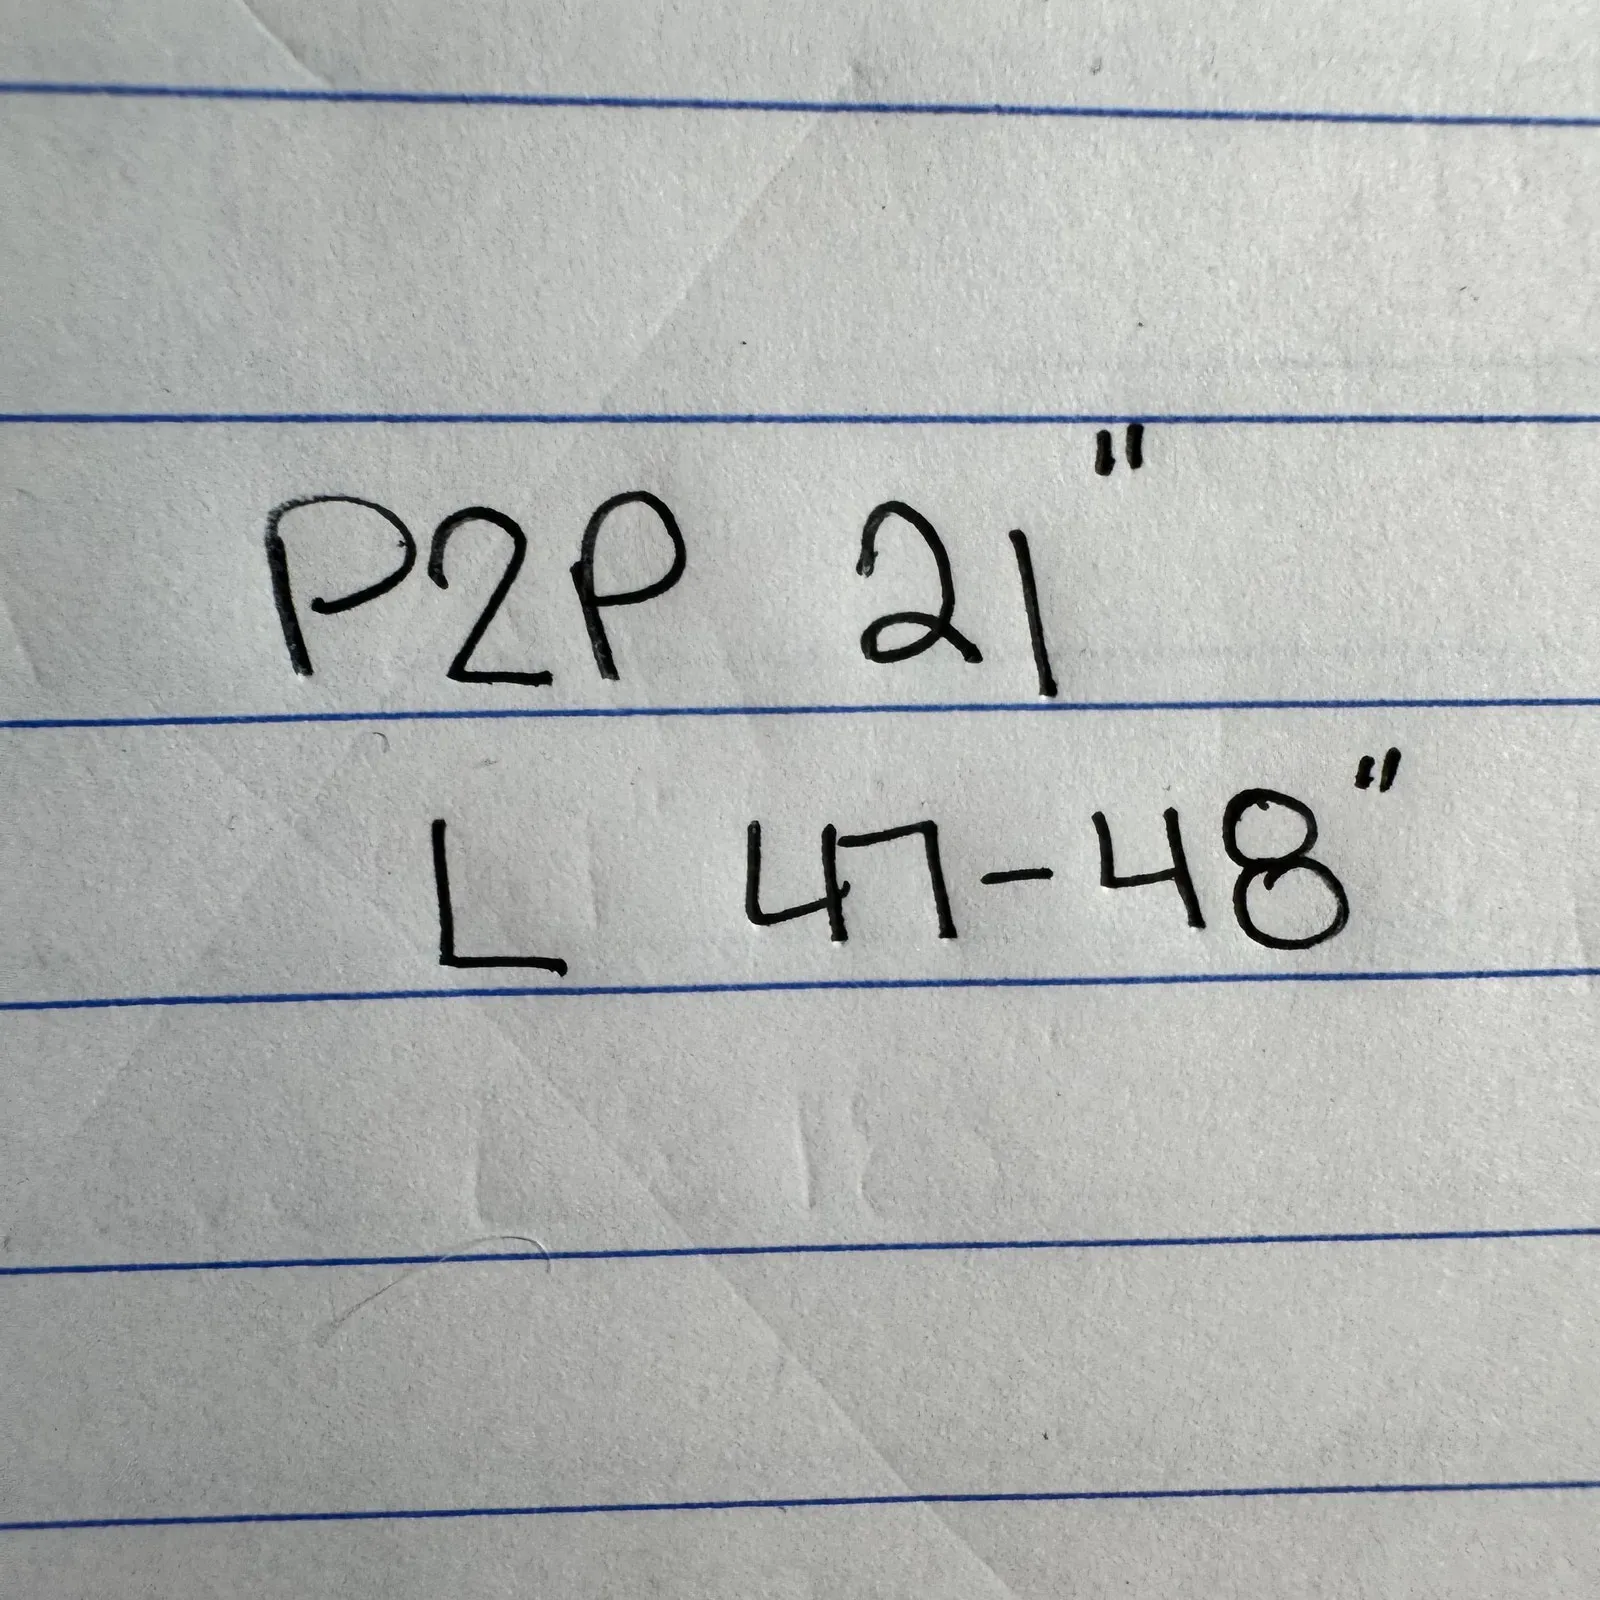 P2P 21"
L 47-48"